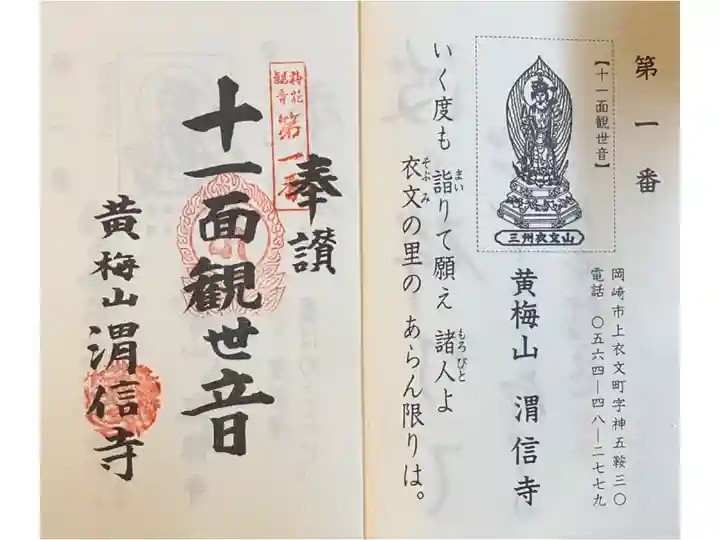 第一番
【十一面観世音】
三州衣文山
岡崎市上衣文町字神五鞍三〇
電話 〇五六四―四八―二七七九
黄梅山 渭信寺
いく度も 詣りて願え 諸人よ
まい
もろびと
衣文の里の あらん限りは。
そぶみ
奉讃
梅花
観音
第一番
十一面観世音
黄梅山 渭信寺